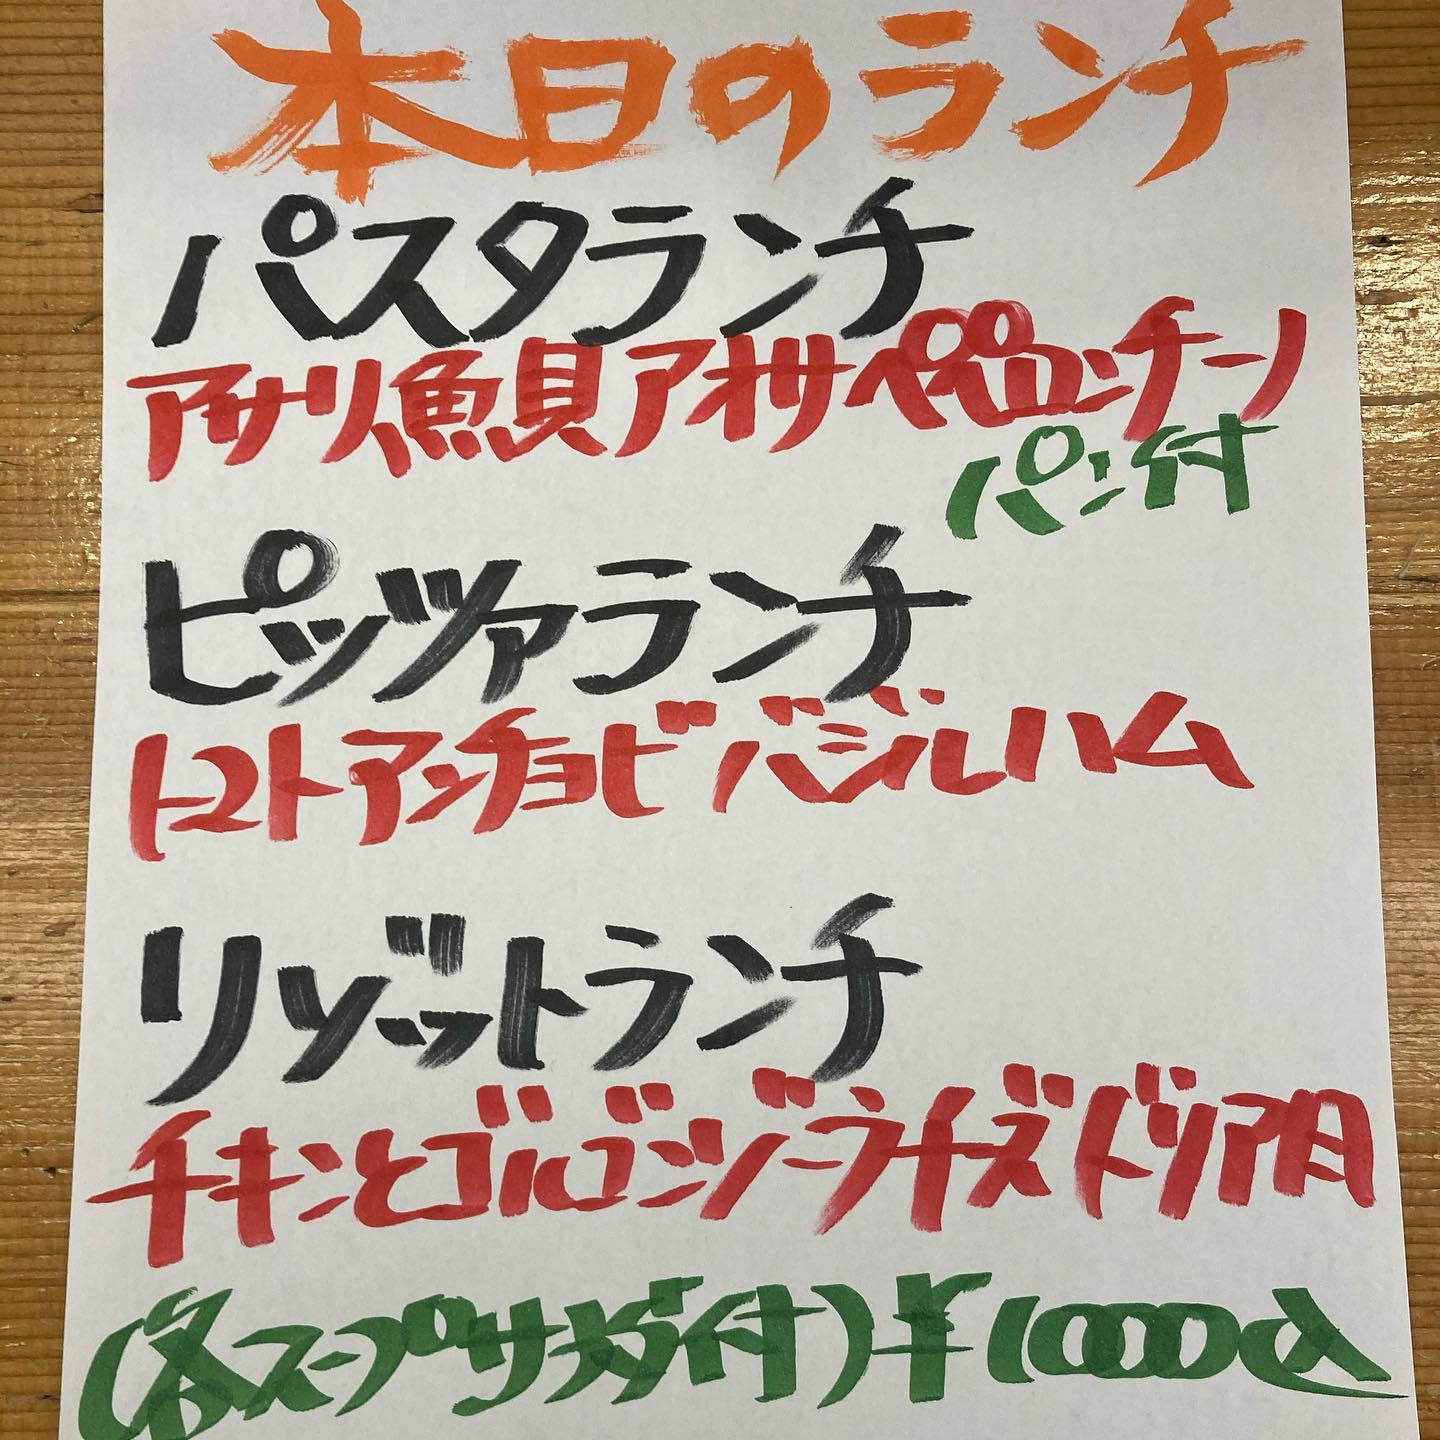 本日のランチ
パスタランチ
アサリ魚貝アオサペペロンチーノ
パン付
ピッツァランチ
トマトアンチョビバジルハム
リゾットランチ
チキンとゴルゴンゾーラチーズドリア風
(各スープサラダ付)¥1000込